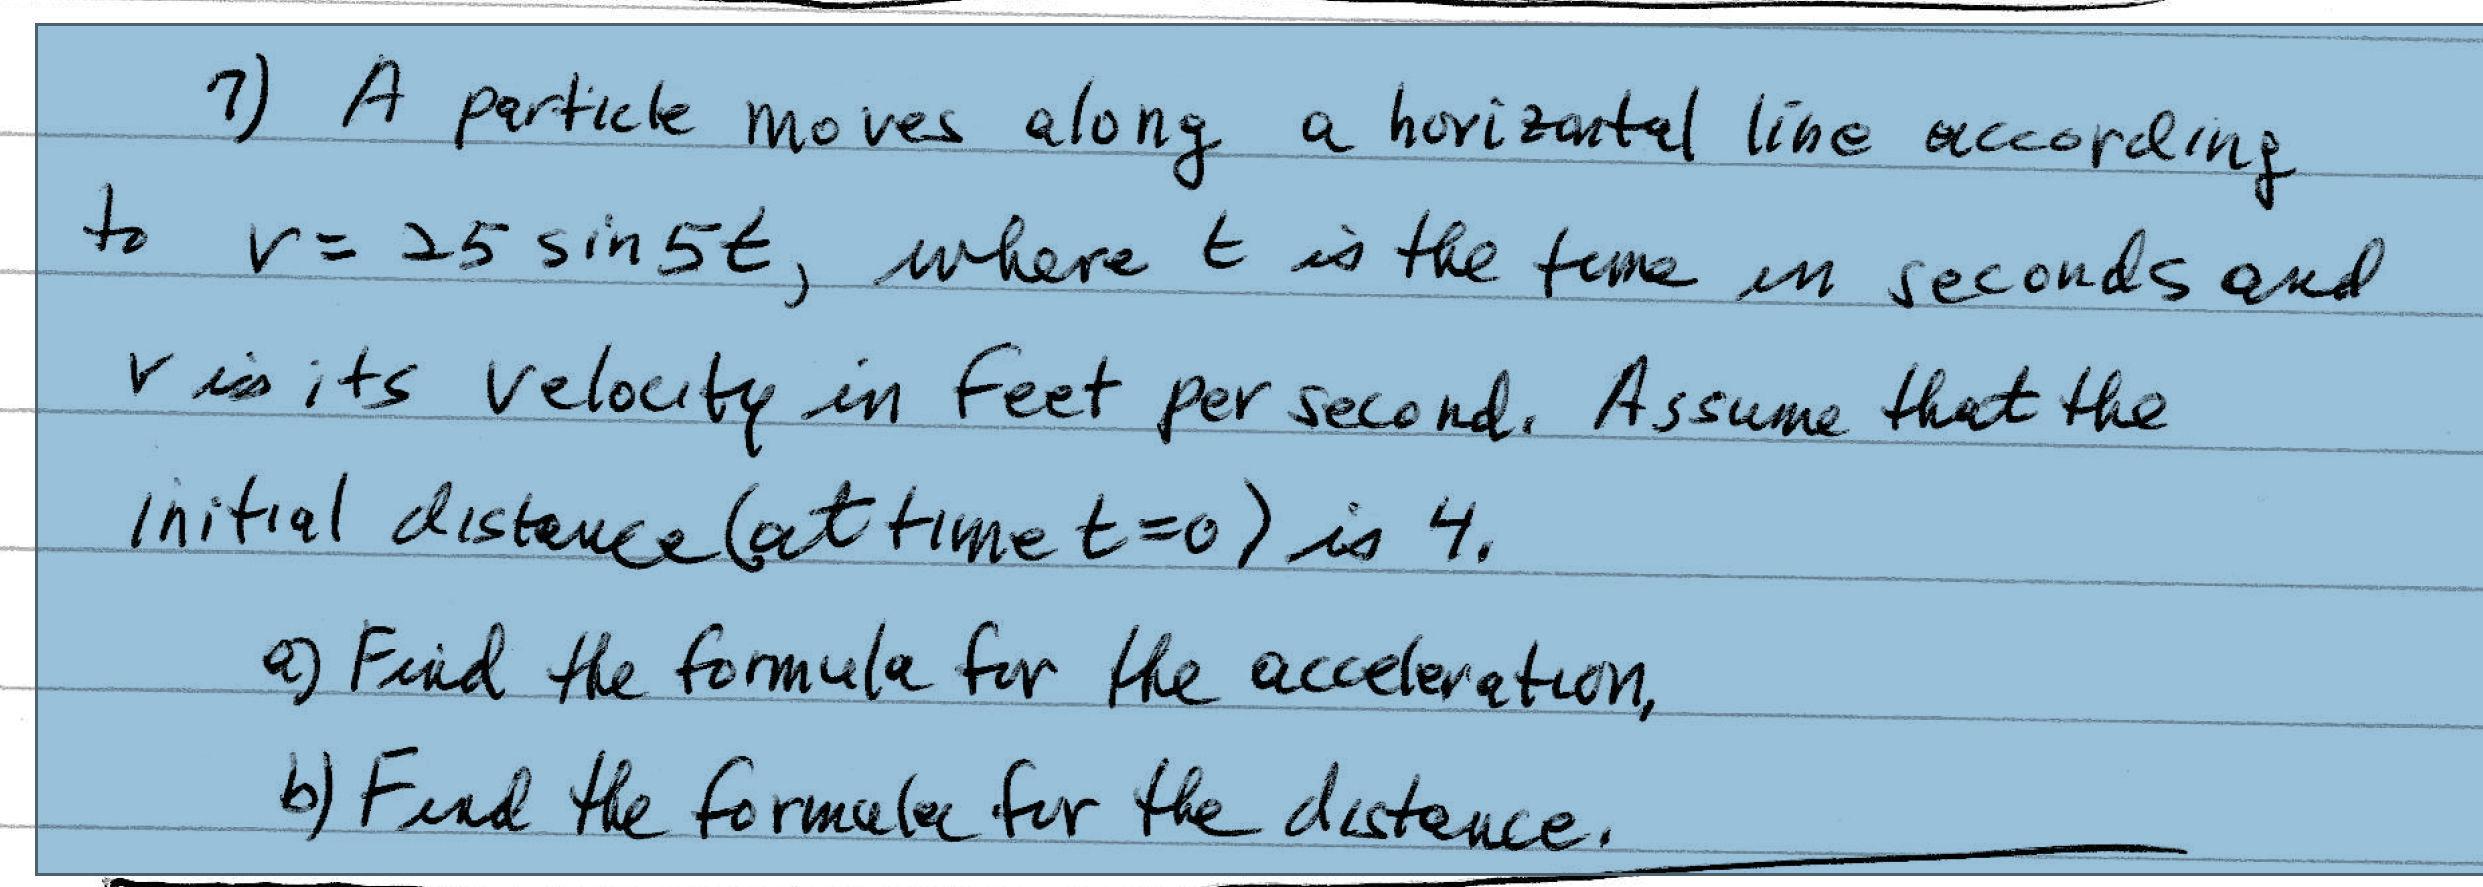 7) A particle moves along a horizontal line according
to v = 25 sin 5t, where t is the time in seconds and
v is its velocity in feet per second. Assume that the
initial distance (at time t=0) is 4.
a) Find the formula for the acceleration,
b) Find the formula for the distance.